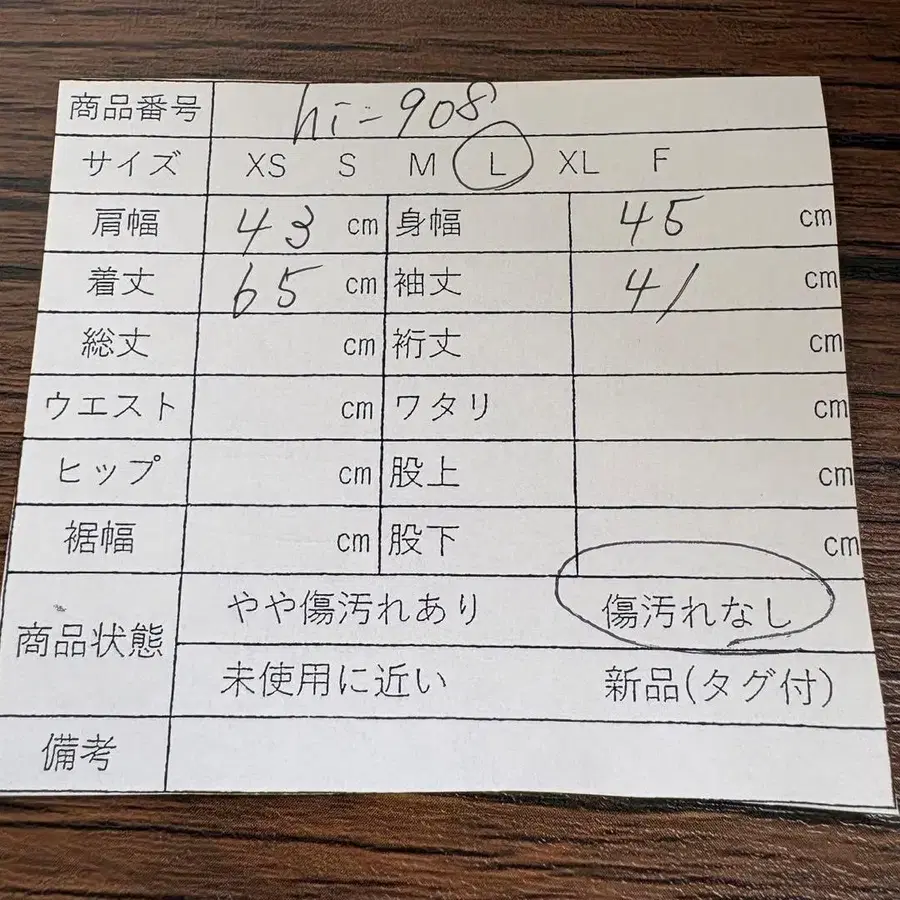 商品番号 hi-908
サイズ XS S M L XL F
肩幅 43 cm 身幅 45 cm
着丈 65 cm 袖丈 41 cm
総丈 cm 裄丈 cm
ウエスト cm ワタリ cm
ヒップ cm 股上 cm
裾幅 cm 股下 cm
商品状態 やや傷汚れあり 傷汚れなし
未使用に近い 新品(タグ付)
備考